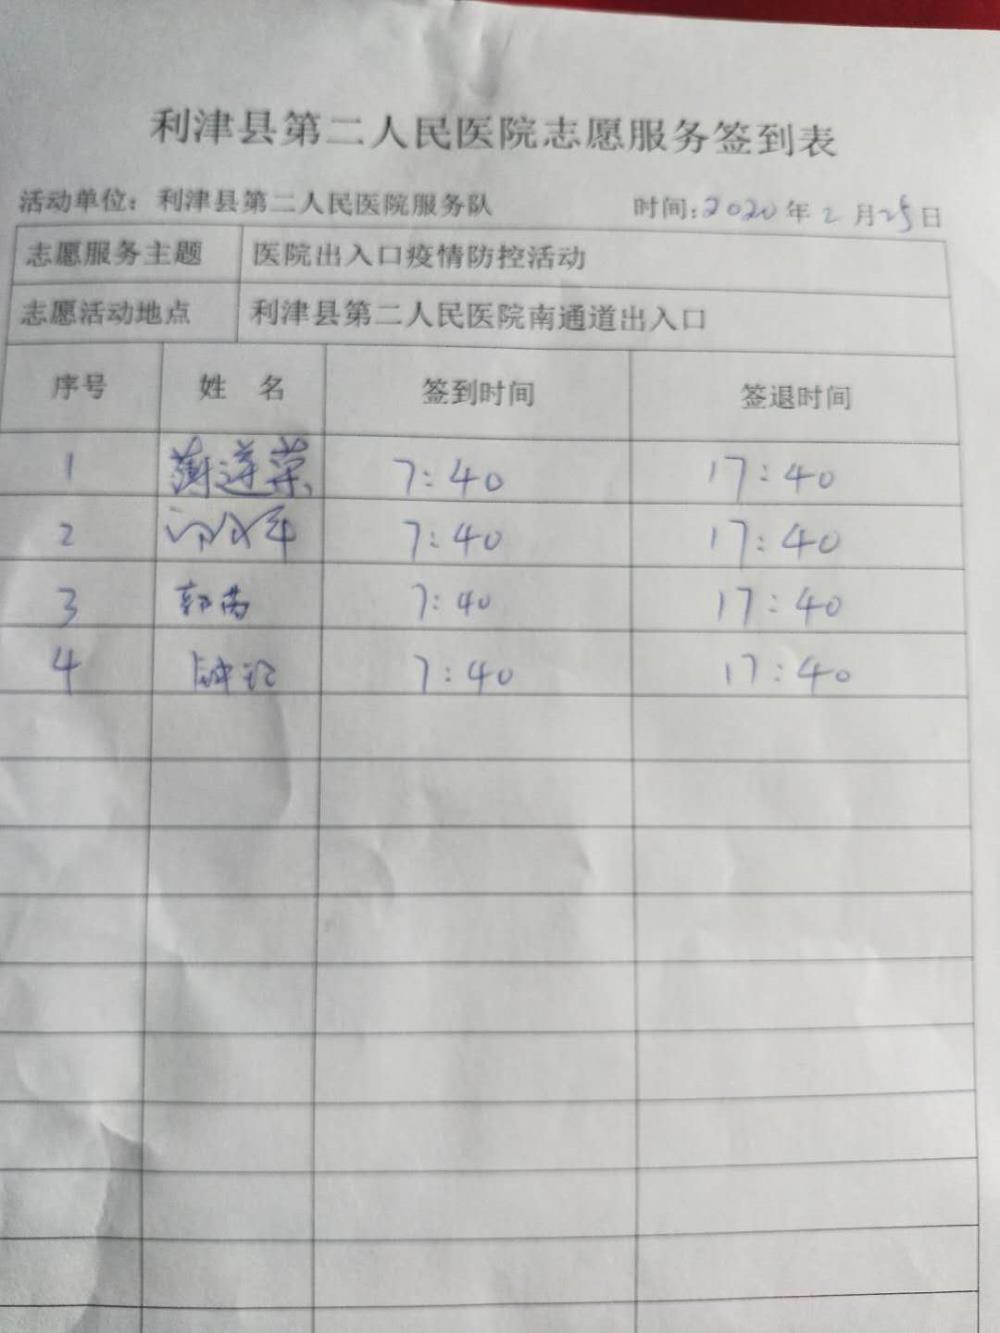 利津县第二人民医院志愿服务签到表
活动单位：利津县第二人民医院服务队 时间：2020年2月25日
志愿服务主题 医院出入口疫情防控活动
志愿活动地点 利津县第二人民医院南通道出入口
序号 姓 名 签到时间 签退时间
1 薄莲荣 7:40 17:40
2 7:40 17:40
3 7:40 17:40
4 7:40 17:40